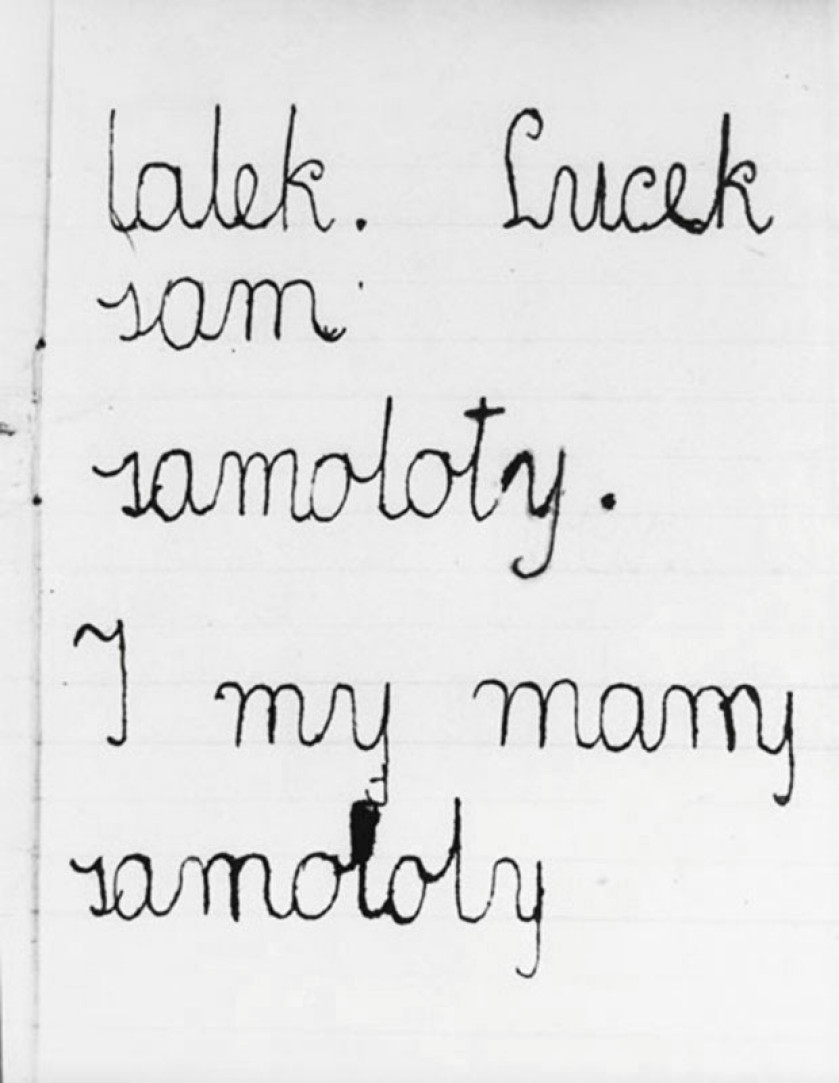 lalek. Lucek
sam
samoloty.
I my mamy
samoloty